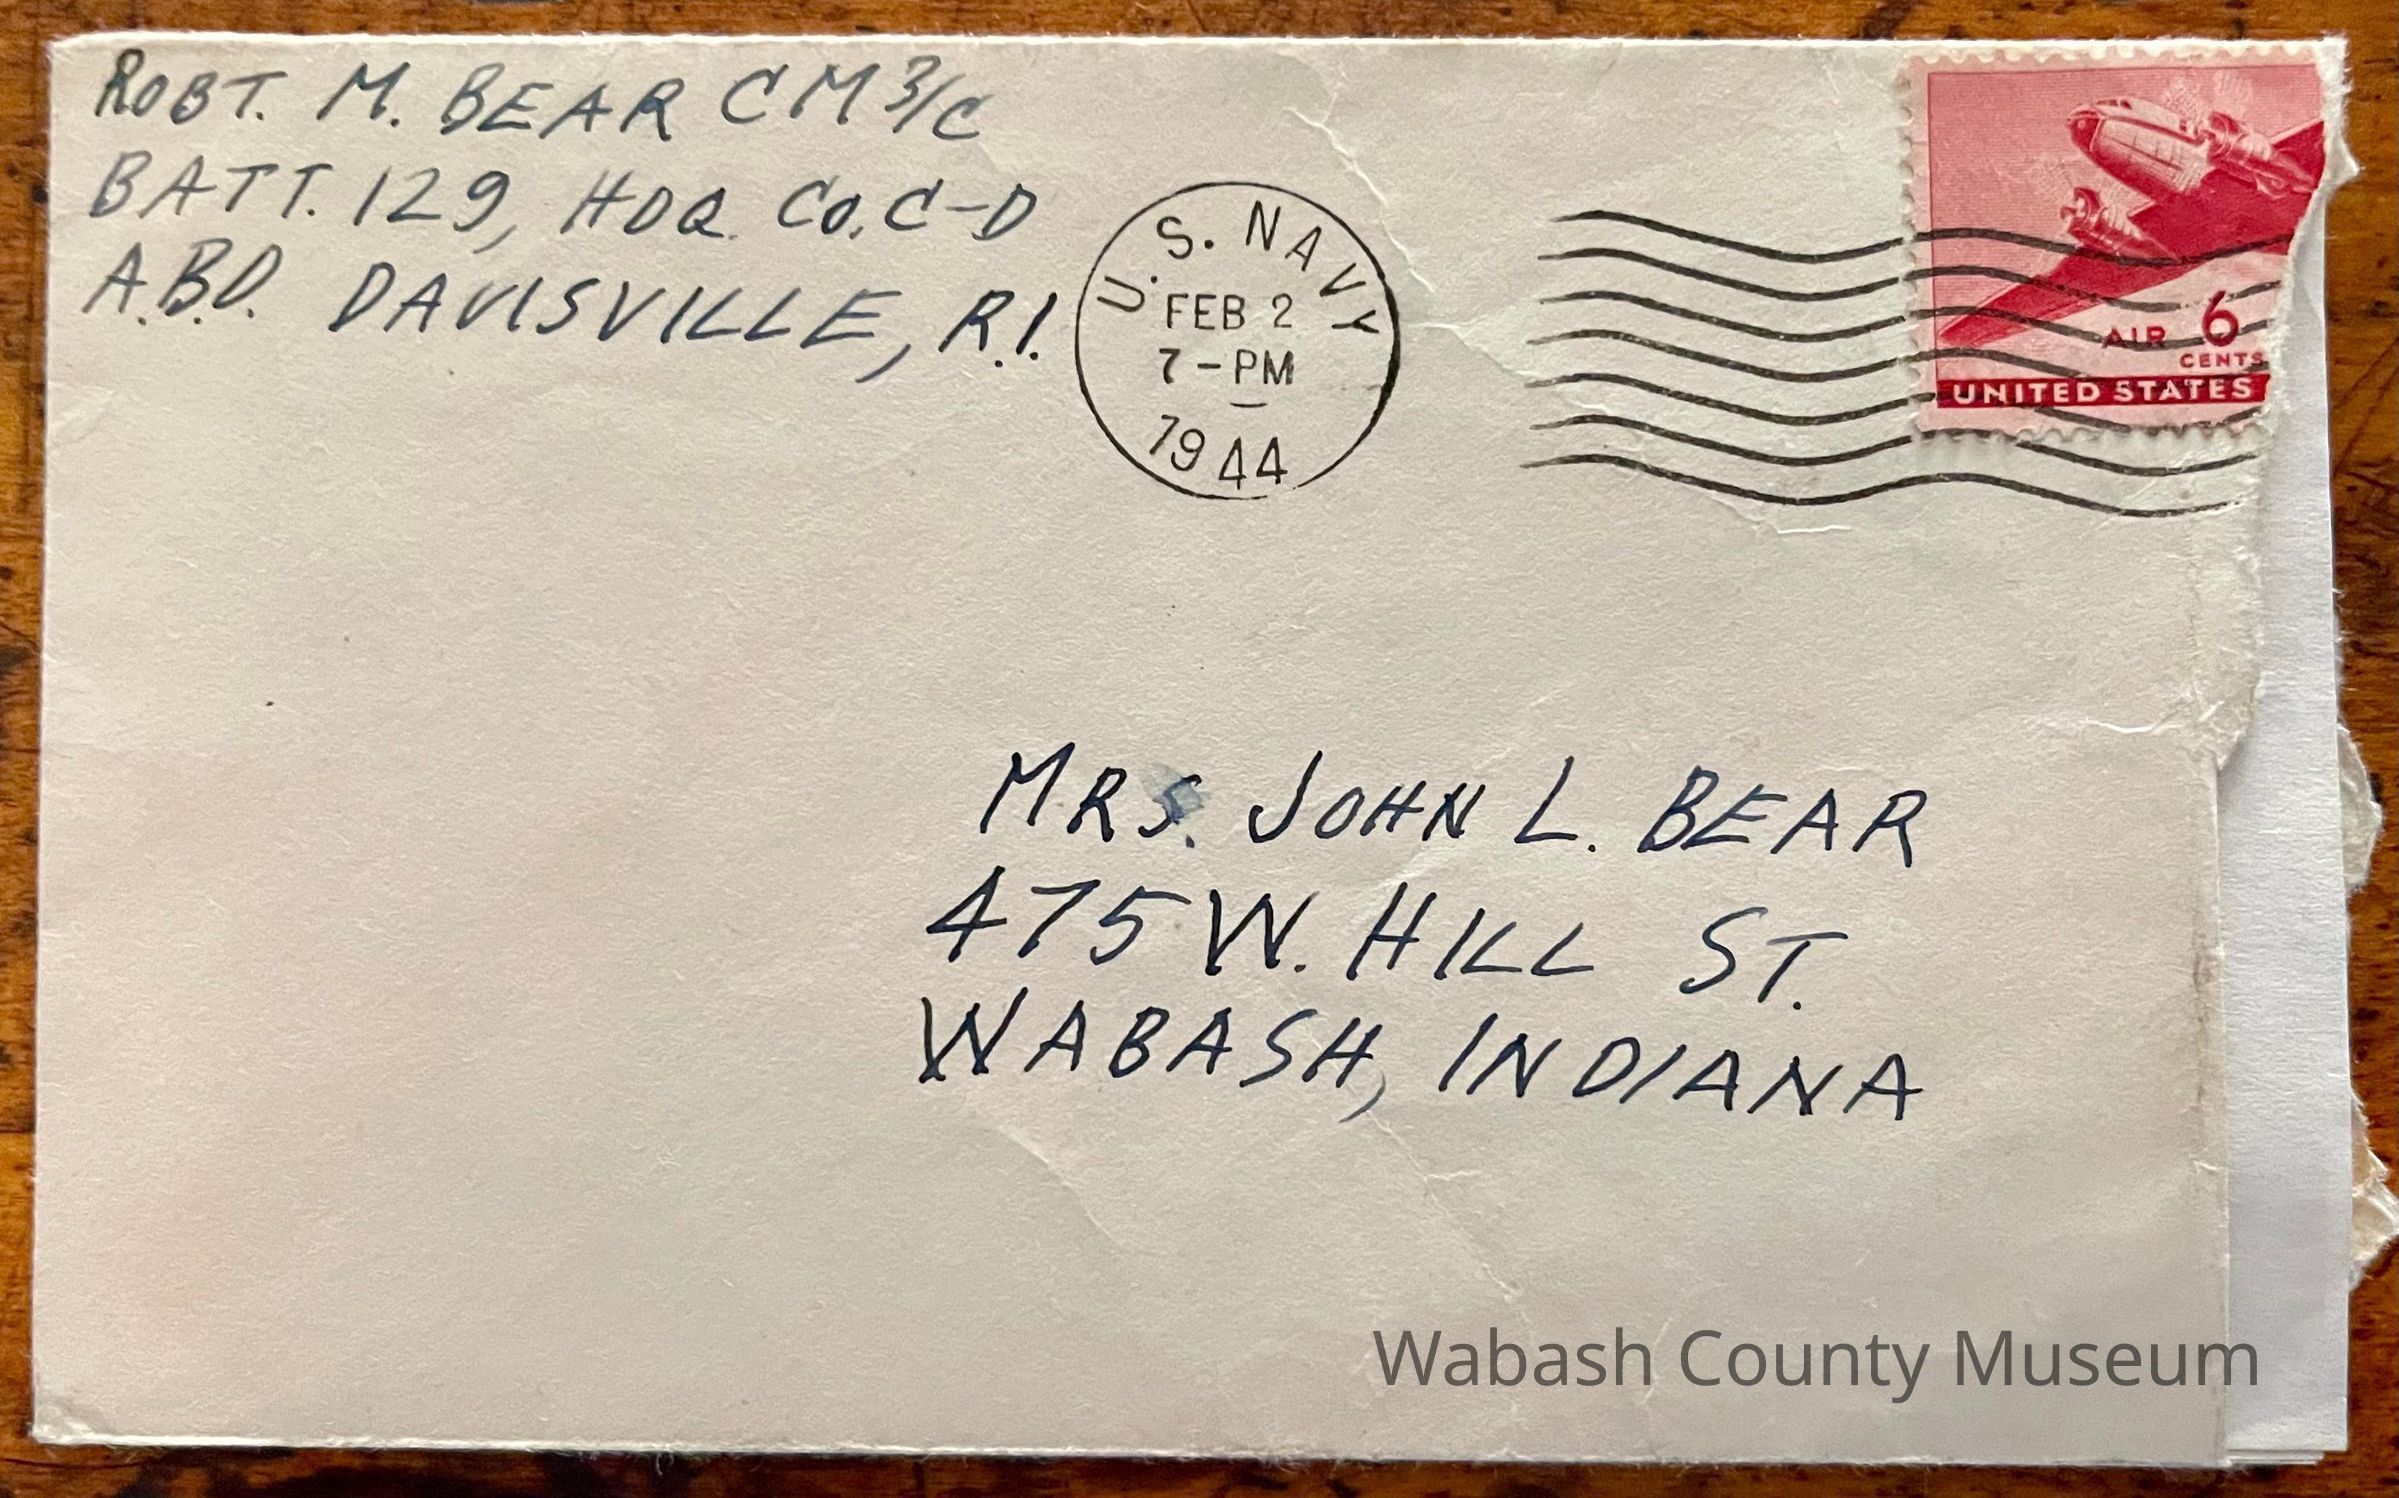 ROBT. M. BEAR CM 3/C
BATT. 129, HDQ. CO. C-D
A.B.D. DAVISVILLE, R.I.
U.S. NAVY
FEB 2
7-PM
1944
AIR 6
CENTS
UNITED STATES
MRS. JOHN L. BEAR
475 W. HILL ST.
WABASH, INDIANA
Wabash County Museum